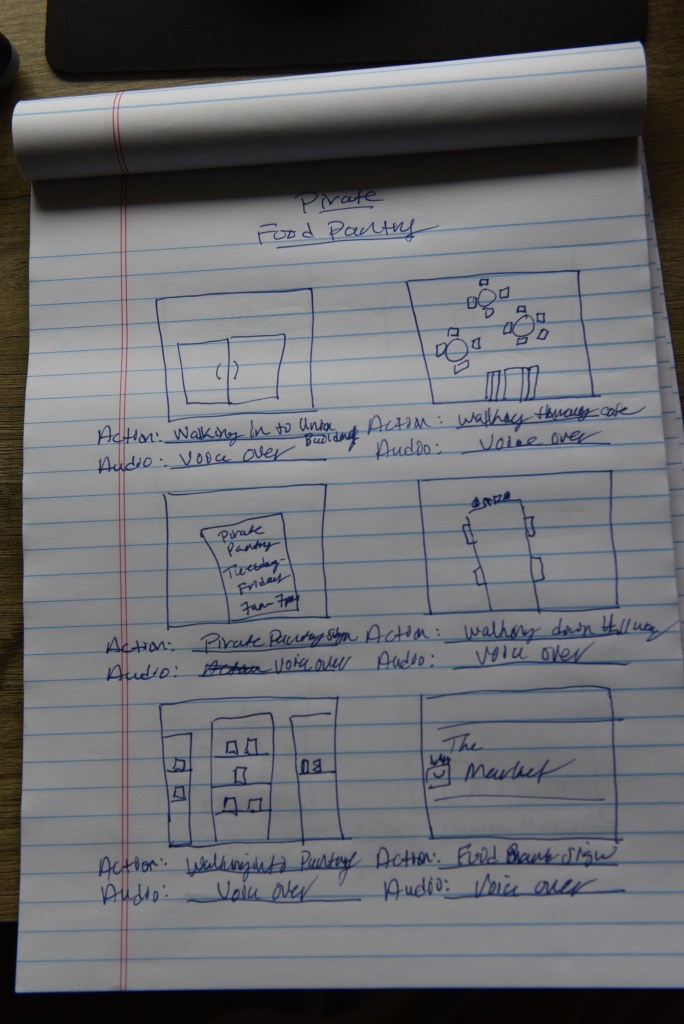 Pirate
Food Pantry
Action: Walking in to Union Building
Audio: Voice over
Action: Walking through cafe
Audio: Voice over
Pirate
Pantry
Tuesday-
Friday
7am-7pm
Action: Pirate Pantry sign
Audio: Voice over
Action: Walking down Hallway
Audio: Voice over
Action: Walking into Pantry
Audio: Voice over
The
Market
Action: Food Bank sign
Audio: Voice over